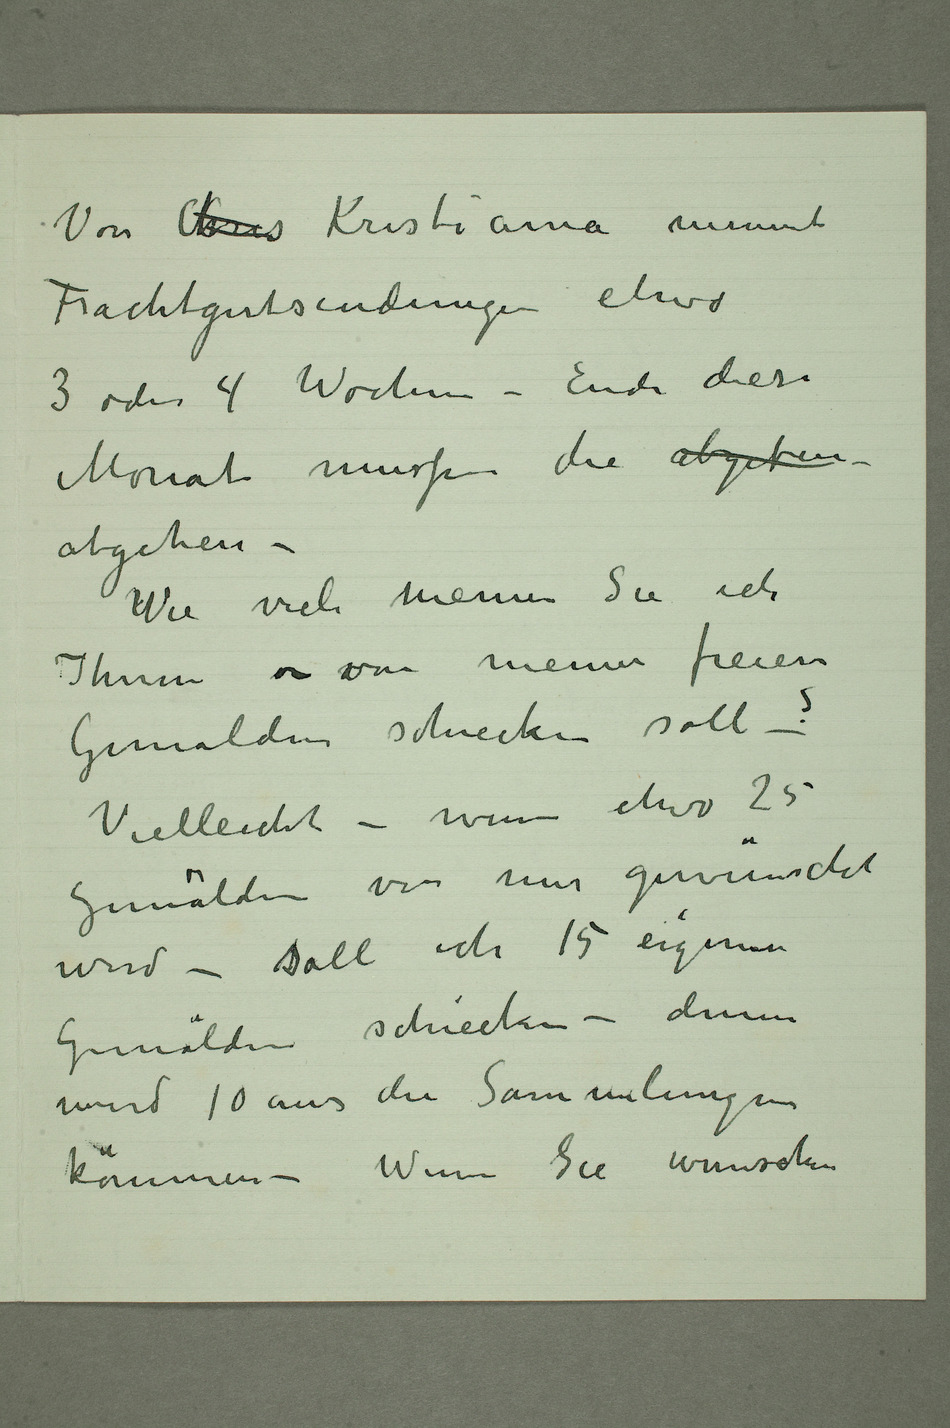 Von Chris Kristiania nimmt
Frachtgutsendungen etwa
3 oder 4 Wochen – Ende diese
Monat mussen die abgeben –
abgehen –
Wie viele meinen Sie ich
Ihnen o von meinen freien
Gemalden schiecken soll –?
Vielleicht – wenn etwa 25
Gemälden von mir gewünscht
wird – soll ich 15 eigenen
Gemälden schiecken – denn
wird 10 aus die Sammelungen
kömmen – Wenn Sie wünschen